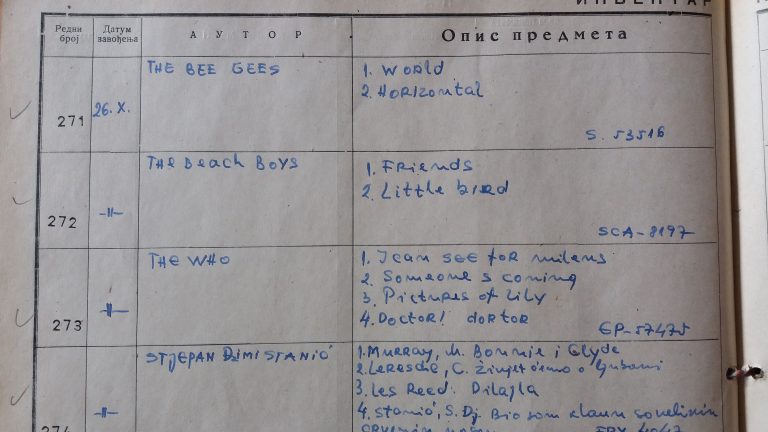 ИНВЕНТАР
Редни број
Датум завођења
АУТОР
Опис предмета
271
26. X.
THE BEE GEES
1. World
2. Horizontal
S. 53516
272
-||-
THE Beach Boys
1. Friends
2. Little bird
SCA-8197
273
-||-
THE WHO
1. I can see for milens
2. Someone s coming
3. Pictures of Lily
4. Doctor! dortor
EP-57475
274
-||-
STJEPAN DJIMI STANIĆ
1. Murray, M. Bonnie i Clyde
2. Leresche, C. Živjet ćemo o ljubavi
3. Les Reed. Dilajla
4. Stanić, S. Dj. Bio sam klaun